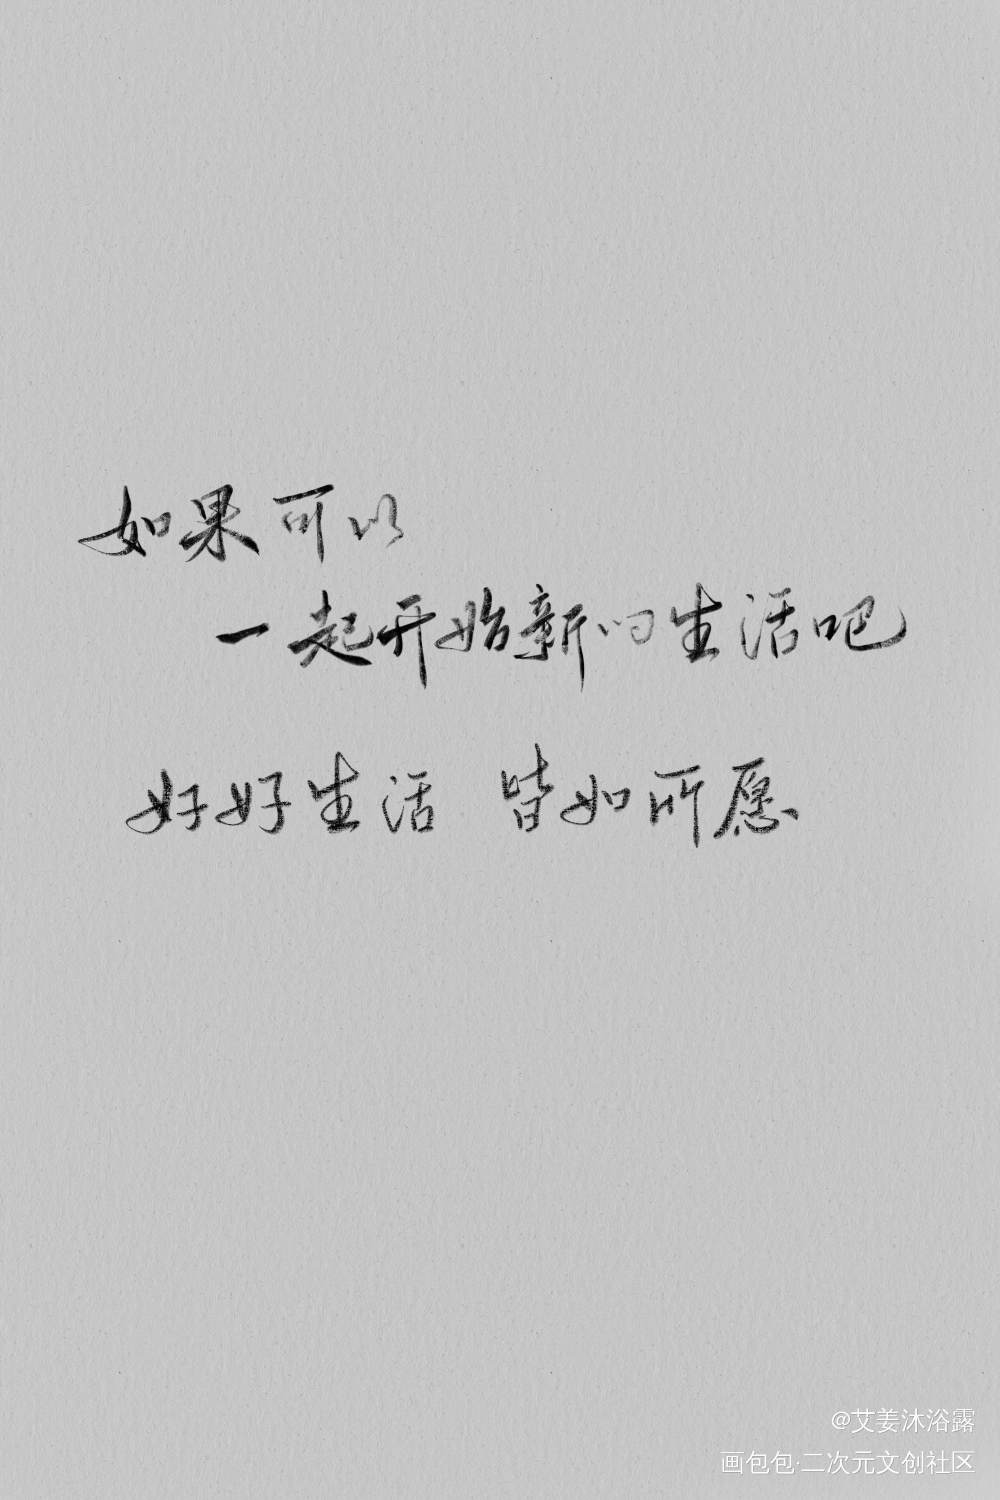 如果可以
一起开始新的生活吧
好好生活 皆如所愿
@艾姜沐浴露
画包包·二次元文创社区